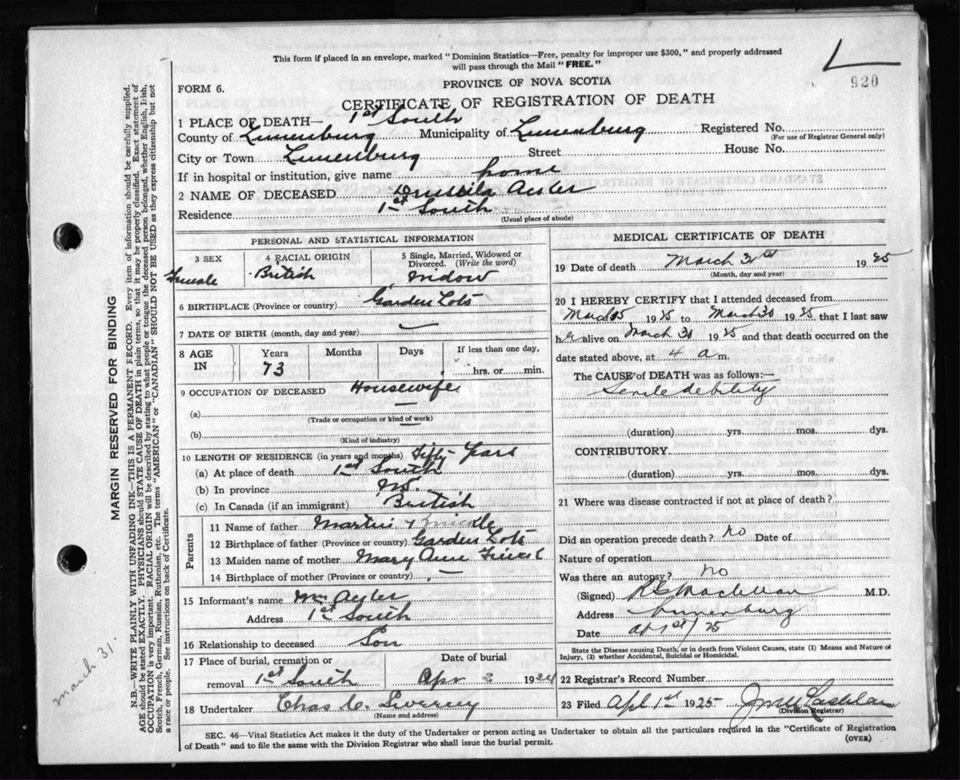 This form if placed in an envelope, marked "Dominion Statistics—Free, penalty for improper use $300," and properly addressed
will pass through the Mail "FREE."
920
PROVINCE OF NOVA SCOTIA
FORM 6.
CERTIFICATE OF REGISTRATION OF DEATH
1 PLACE OF DEATH— 1st South
County of Lunenburg Municipality of Lunenburg Registered No.
(For use of Registrar General only)
City or Town Lunenburg Street House No.
If in hospital or institution, give name home
2 NAME OF DECEASED
Residence 1st South
(Usual place of abode)
PERSONAL AND STATISTICAL INFORMATION
3 SEX 4 RACIAL ORIGIN 5 Single, Married, Widowed or Divorced. (Write the word)
Female British Widow
6 BIRTHPLACE (Province or country) Garden Lots
7 DATE OF BIRTH (month, day and year) —
8 AGE IN Years Months Days If less than one day,
73 hrs. or min.
9 OCCUPATION OF DECEASED Housewife
(a)
(Trade or occupation or kind of work)
(b)
(Kind of industry)
10 LENGTH OF RESIDENCE (in years and months) Fifty Years
(a) At place of death 1st South
(b) In province N.S.
(c) In Canada (if an immigrant) British
Parents
11 Name of father Martin
12 Birthplace of father (Province or country) Garden Lots
13 Maiden name of mother Mary Ann
14 Birthplace of mother (Province or country) —
15 Informant's name Wm
Address 1st South
16 Relationship to deceased Son
17 Place of burial, cremation or removal 1st South
Date of burial Apr 2 1924
18 Undertaker Chas C.
(Name and address)
MEDICAL CERTIFICATE OF DEATH
19 Date of death March 31st 1925
(Month, day and year)
20 I HEREBY CERTIFY that I attended deceased from
March 1925 to March 30 1925 that I last saw
her alive on March 30 1925 and that death occurred on the
date stated above, at 4 a m.
The CAUSE of DEATH was as follows:—
Senile debility
(duration) yrs. mos. dys.
CONTRIBUTORY
(duration) yrs. mos. dys.
21 Where was disease contracted if not at place of death?
Did an operation precede death? no Date of
Nature of operation
Was there an autopsy? no
(Signed) M.D.
Address Lunenburg
Date Ap 1st/25
State the Disease causing Death, or in death from Violent Causes, state (1) Means and Nature of
Injury, (2) whether Accidental, Suicidal or Homicidal.
22 Registrar's Record Number
23 Filed Apl 1st 1925
(Division Registrar)
SEC. 46—Vital Statistics Act makes it the duty of the Undertaker or person acting as Undertaker to obtain all the particulars required in the "Certificate of Registration
of Death" and to file the same with the Division Registrar who shall issue the burial permit.
(OVER)
MARGIN RESERVED FOR BINDING
N.B.—WRITE PLAINLY WITH UNFADING INK—THIS IS A PERMANENT RECORD. Every item of information should be carefully supplied.
AGE should be stated EXACTLY. PHYSICIANS should STATE CAUSE OF DEATH in plain terms, so that it may be properly classified. Exact statement of
OCCUPATION is very important. RACIAL ORIGIN will be described by stating to what people or tongue the deceased person belonged, whether English, Irish,
Scotch, French, German, Russian, Ruthenian, etc. The terms "AMERICAN" or "CANADIAN" SHOULD NOT BE USED as they express citizenship but not
a race or people. See instructions on back of Certificate.
March 31.